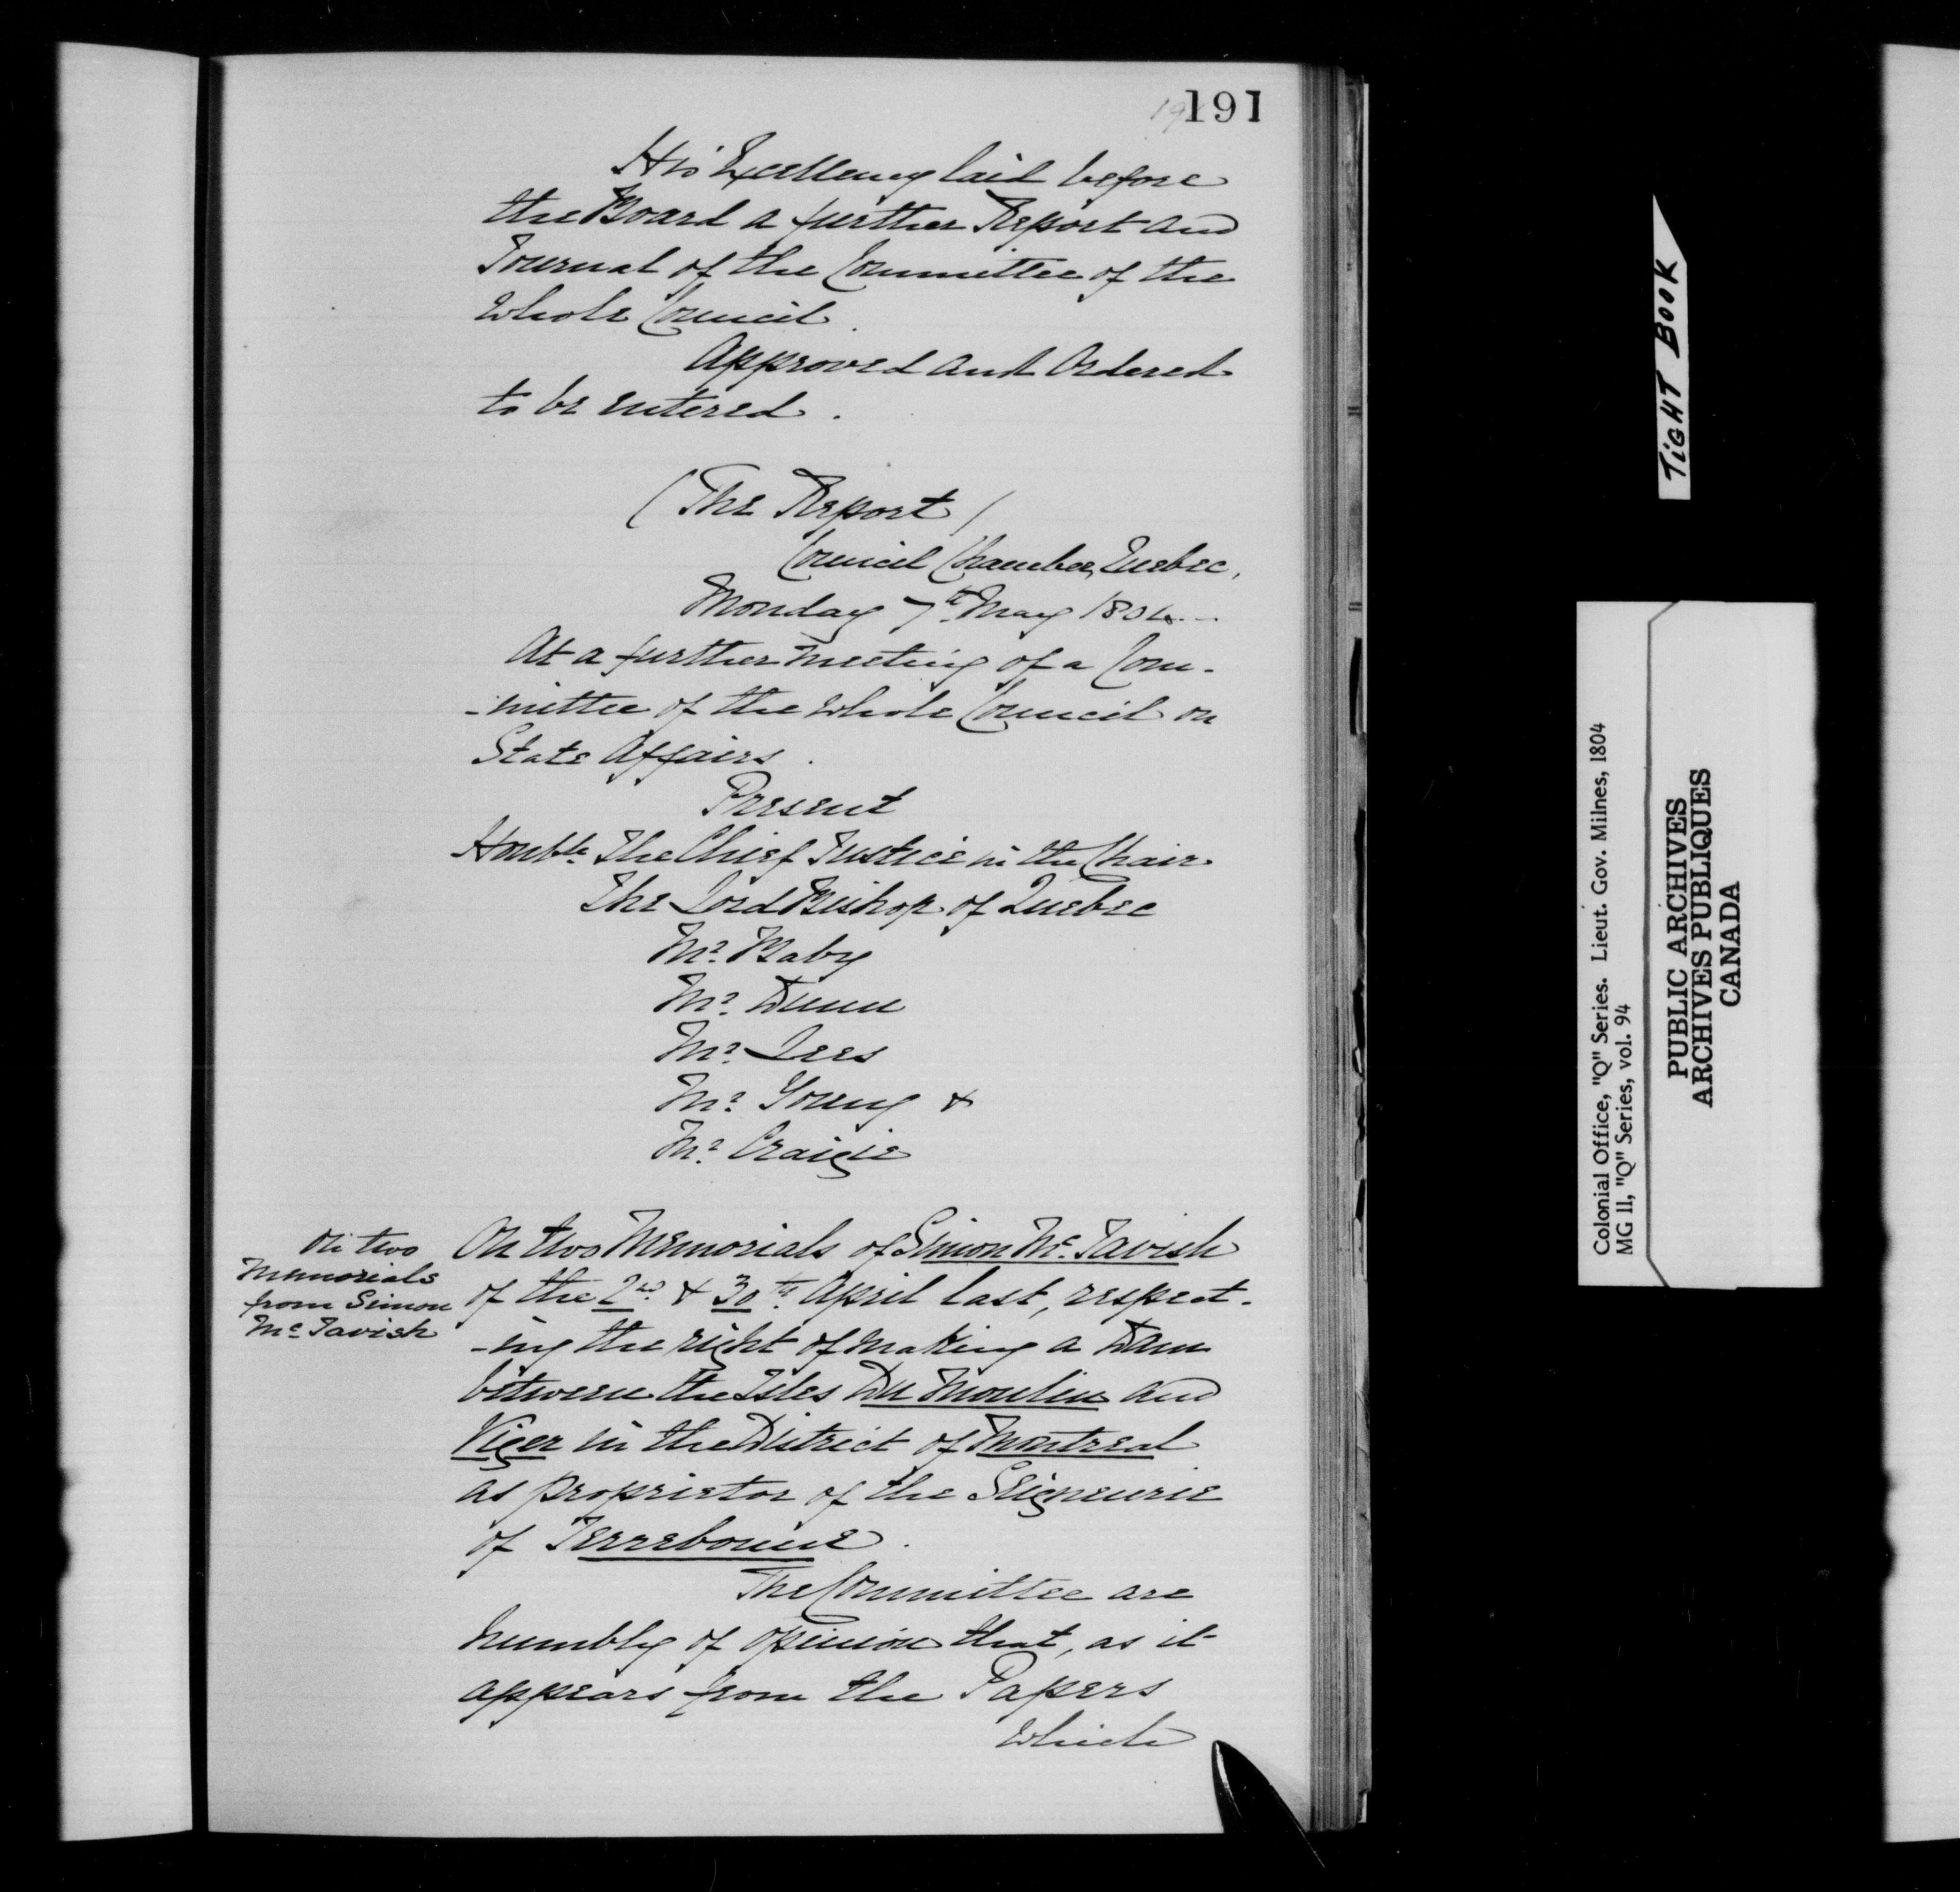 191
His Excellency laid before
the Board a further Report and
Journal of the Committee of the
whole Council.
Approved and Ordered
to be entered.
(The Report)
Council Chamber, Quebec,
Monday 7th May 1804.
At a further meeting of a Com-
-mittee of the whole Council on
State Affairs.
Present
Honble. The Chief Justice in the Chair
The Lord Bishop of Quebec
Mr. Baby
Mr. Dunn
Mr. Lees
Mr. Young &
Mr. Craigie
On two
Memorials
from Simon
Mc Tavish
On two Memorials of Simon Mc. Tavish
of the 2nd & 30th April last, respect-
-ing the right of making a Dam
between the Isles Du Moulin and
Viger in the District of Montreal
as proprietor of the Seigneurie
of Terrebonne.
The Committee are
humbly of opinion that, as it
appears from the Papers
which
TIGHT BOOK
Colonial Office, "Q" Series. Lieut. Gov. Milnes, 1804
MG 11, "Q" Series, vol. 94
PUBLIC ARCHIVES
ARCHIVES PUBLIQUES
CANADA